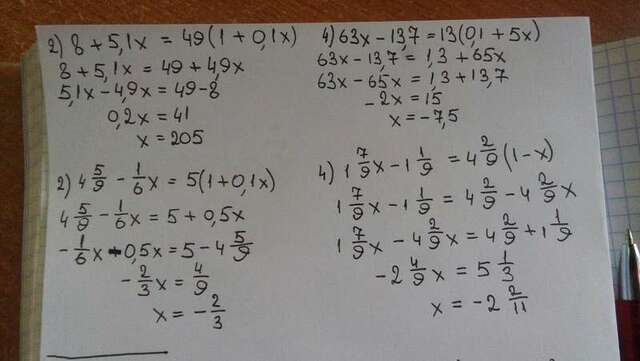 2) 8 + 5,1x = 49(1 + 0,1x)
8 + 5,1x = 49 + 4,9x
5,1x - 4,9x = 49 - 8
0,2x = 41
x = 205
4) 63x - 13,7 = 13(0,1 + 5x)
63x - 13,7 = 1,3 + 65x
63x - 65x = 1,3 + 13,7
-2x = 15
x = -7,5
2) 4 5/9 - 1/6x = 5(1 + 0,1x)
4 5/9 - 1/6x = 5 + 0,5x
-1/6x - 0,5x = 5 - 4 5/9
-2/3x = 4/9
x = -2/3
4) 1 7/9x - 1 1/9 = 4 2/9(1 - x)
1 7/9x - 1 1/9 = 4 2/9 - 4 2/9x
1 7/9x - 4 2/9x = 4 2/9 + 1 1/9
-2 4/9x = 5 1/3
x = -2 2/11